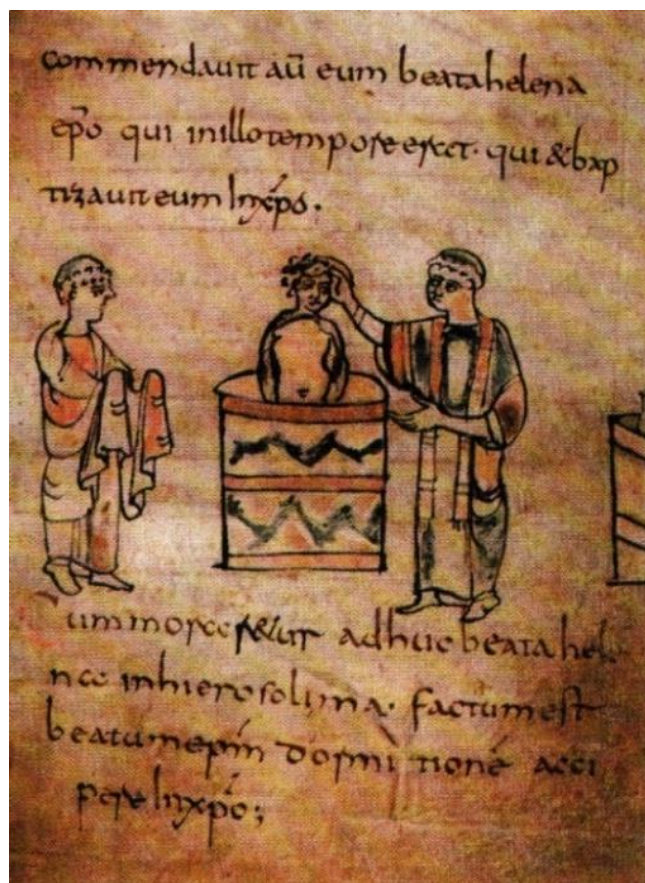 commendauit au̅ eum beata helena
ep̅o qui in illo tempore erat. qui & bap
tizauit eum In xp̅o.
Cum morare&ur adhuc beata hele
na in hierosolima. factum est
beatum ep̅m dormitione acci
pere In xp̅o;